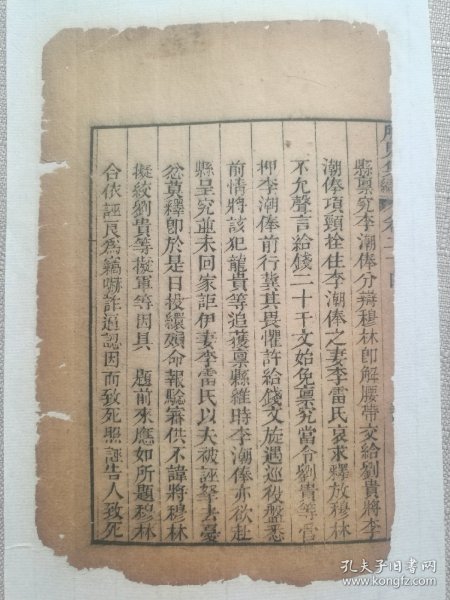 縣禀究李潮俸分辯穆林即解腰帶交給劉貴將李
潮俸項頸拴住李潮俸之妻李雷氏哀求釋放穆林
不允聲言給錢二十千文始免禀究當令劉貴等管
押李潮俸前行冀其畏懼許給錢文旋遇巡役盤悉
前情將該犯龍貴等追獲禀縣維時李潮俸亦欲赴
縣呈究並未回家詎伊妻李雷氏以夫被誣拏去憂
忿莫釋即於是日投繯殞命報驗審供不諱將穆林
擬絞劉貴等擬軍等因具 題前來應如所題穆林
合依誣良為竊嚇詐逼認因而致死照誣告人致死
孔夫子旧书网
www.kongfz.com